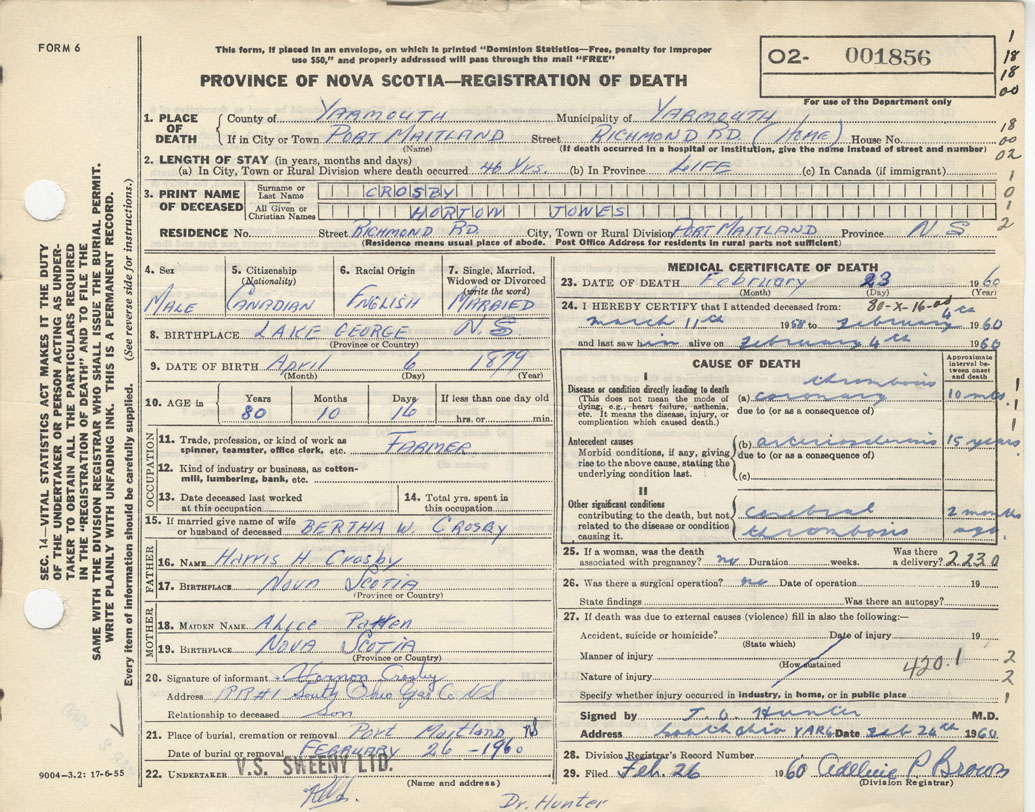 FORM 6
This form, if placed in an envelope, on which is printed "Dominion Statistics—Free, penalty for improper
use $50," and properly addressed will pass through the mail "FREE"
PROVINCE OF NOVA SCOTIA—REGISTRATION OF DEATH
O2- 001856
For use of the Department only
1
18
18
00
1. PLACE OF DEATH
County of YARMOUTH Municipality of YARMOUTH
If in City or Town PORT MAITLAND Street RICHMOND RD. (HOME) House No.
(Name) (If death occurred in a hospital or institution, give the name instead of street and number)
18
00
02
2. LENGTH OF STAY (in years, months and days)
(a) In City, Town or Rural Division where death occurred 46 Yrs. (b) In Province LIFE (c) In Canada (if immigrant)
3. PRINT NAME OF DECEASED
Surname or Last Name CROSBY
All Given or Christian Names HORTON JONES
1
0
1
2
RESIDENCE No. Street RICHMOND RD. City, Town or Rural Division PORT MAITLAND Province N.S
(Residence means usual place of abode. Post Office Address for residents in rural parts not sufficient)
4. Sex MALE
5. Citizenship (Nationality) CANADIAN
6. Racial Origin ENGLISH
7. Single, Married, Widowed or Divorced (write the word) MARRIED
8. BIRTHPLACE LAKE GEORGE N S
(Province or Country)
9. DATE OF BIRTH April 6 1879
(Month) (Day) (Year)
10. AGE in Years Months Days If less than one day old
80 10 16 hrs. or min.
OCCUPATION
11. Trade, profession, or kind of work as
spinner, teamster, office clerk, etc. FARMER
12. Kind of industry or business, as cotton-
mill, lumbering, bank, etc.
13. Date deceased last worked
at this occupation
14. Total yrs. spent in
this occupation
15. If married give name of wife
or husband of deceased BERTHA W. CROSBY
FATHER
16. NAME Harris H. Crosby
17. BIRTHPLACE NOVA SCOTIA
(Province or Country)
MOTHER
18. MAIDEN NAME ALICE Patten
19. BIRTHPLACE NOVA SCOTIA
(Province or Country)
20. Signature of informant Vernon Crosby
Address RR#1 South Ohio Yar Co NS
Relationship to deceased Son
21. Place of burial, cremation or removal Port Maitland NS
Date of burial or removal FEBRUARY 26 - 1960
22. UNDERTAKER V.S. SWEENY LTD.
(Name and address)
MEDICAL CERTIFICATE OF DEATH
23. DATE OF DEATH February 23 1960
(Month) (Day) (Year)
80-X-16-
24. I HEREBY CERTIFY that I attended deceased from:
march 11th 1958 to February 4th 1960
and last saw him alive on February 4th 1960
CAUSE OF DEATH
Approximate interval between onset and death
I
Disease or condition directly leading to death
(This does not mean the mode of
dying, e.g., heart failure, asthenia,
etc. It means the disease, injury, or
complication which caused death.)
(a) coronary thrombosis 10 mts.
due to (or as a consequence of)
Antecedent causes
Morbid conditions, if any, giving
rise to the above cause, stating the
underlying condition last.
(b) arteriosclerosis 15 years
due to (or as a consequence of)
(c)
II
Other significant conditions
contributing to the death, but not
related to the disease or condition
causing it.
cerebral thrombosis 2 months ago.
25. If a woman, was the death
associated with pregnancy? no Duration weeks. Was there
a delivery? 2230
26. Was there a surgical operation? no Date of operation 19
State findings Was there an autopsy?
27. If death was due to external causes (violence) fill in also the following:—
Accident, suicide or homicide? Date of injury 19
(State which)
Manner of injury
(How sustained
Nature of injury
420.1
2
2
Specify whether injury occurred in industry, in home, or in public place
1
Signed by J. C. Hunter M.D.
Address South Ohio YAR Co Date Feb 26th 1960
28. Division Registrar's Record Number
29. Filed Feb. 26 1960 Adelbie P Brown
(Division Registrar)
SEC. 14—VITAL STATISTICS ACT MAKES IT THE DUTY
OF THE UNDERTAKER OR PERSON ACTING AS UNDER-
TAKER TO OBTAIN ALL THE PARTICULARS REQUIRED
IN THE "REGISTRATION OF DEATH" AND TO FILE THE
SAME WITH THE DIVISION REGISTRAR WHO SHALL ISSUE THE BURIAL PERMIT.
WRITE PLAINLY WITH UNFADING INK. THIS IS A PERMANENT RECORD.
Every item of information should be carefully supplied. (See reverse side for instructions.)
9004—3.2: 17-6-55
Dr. Hunter